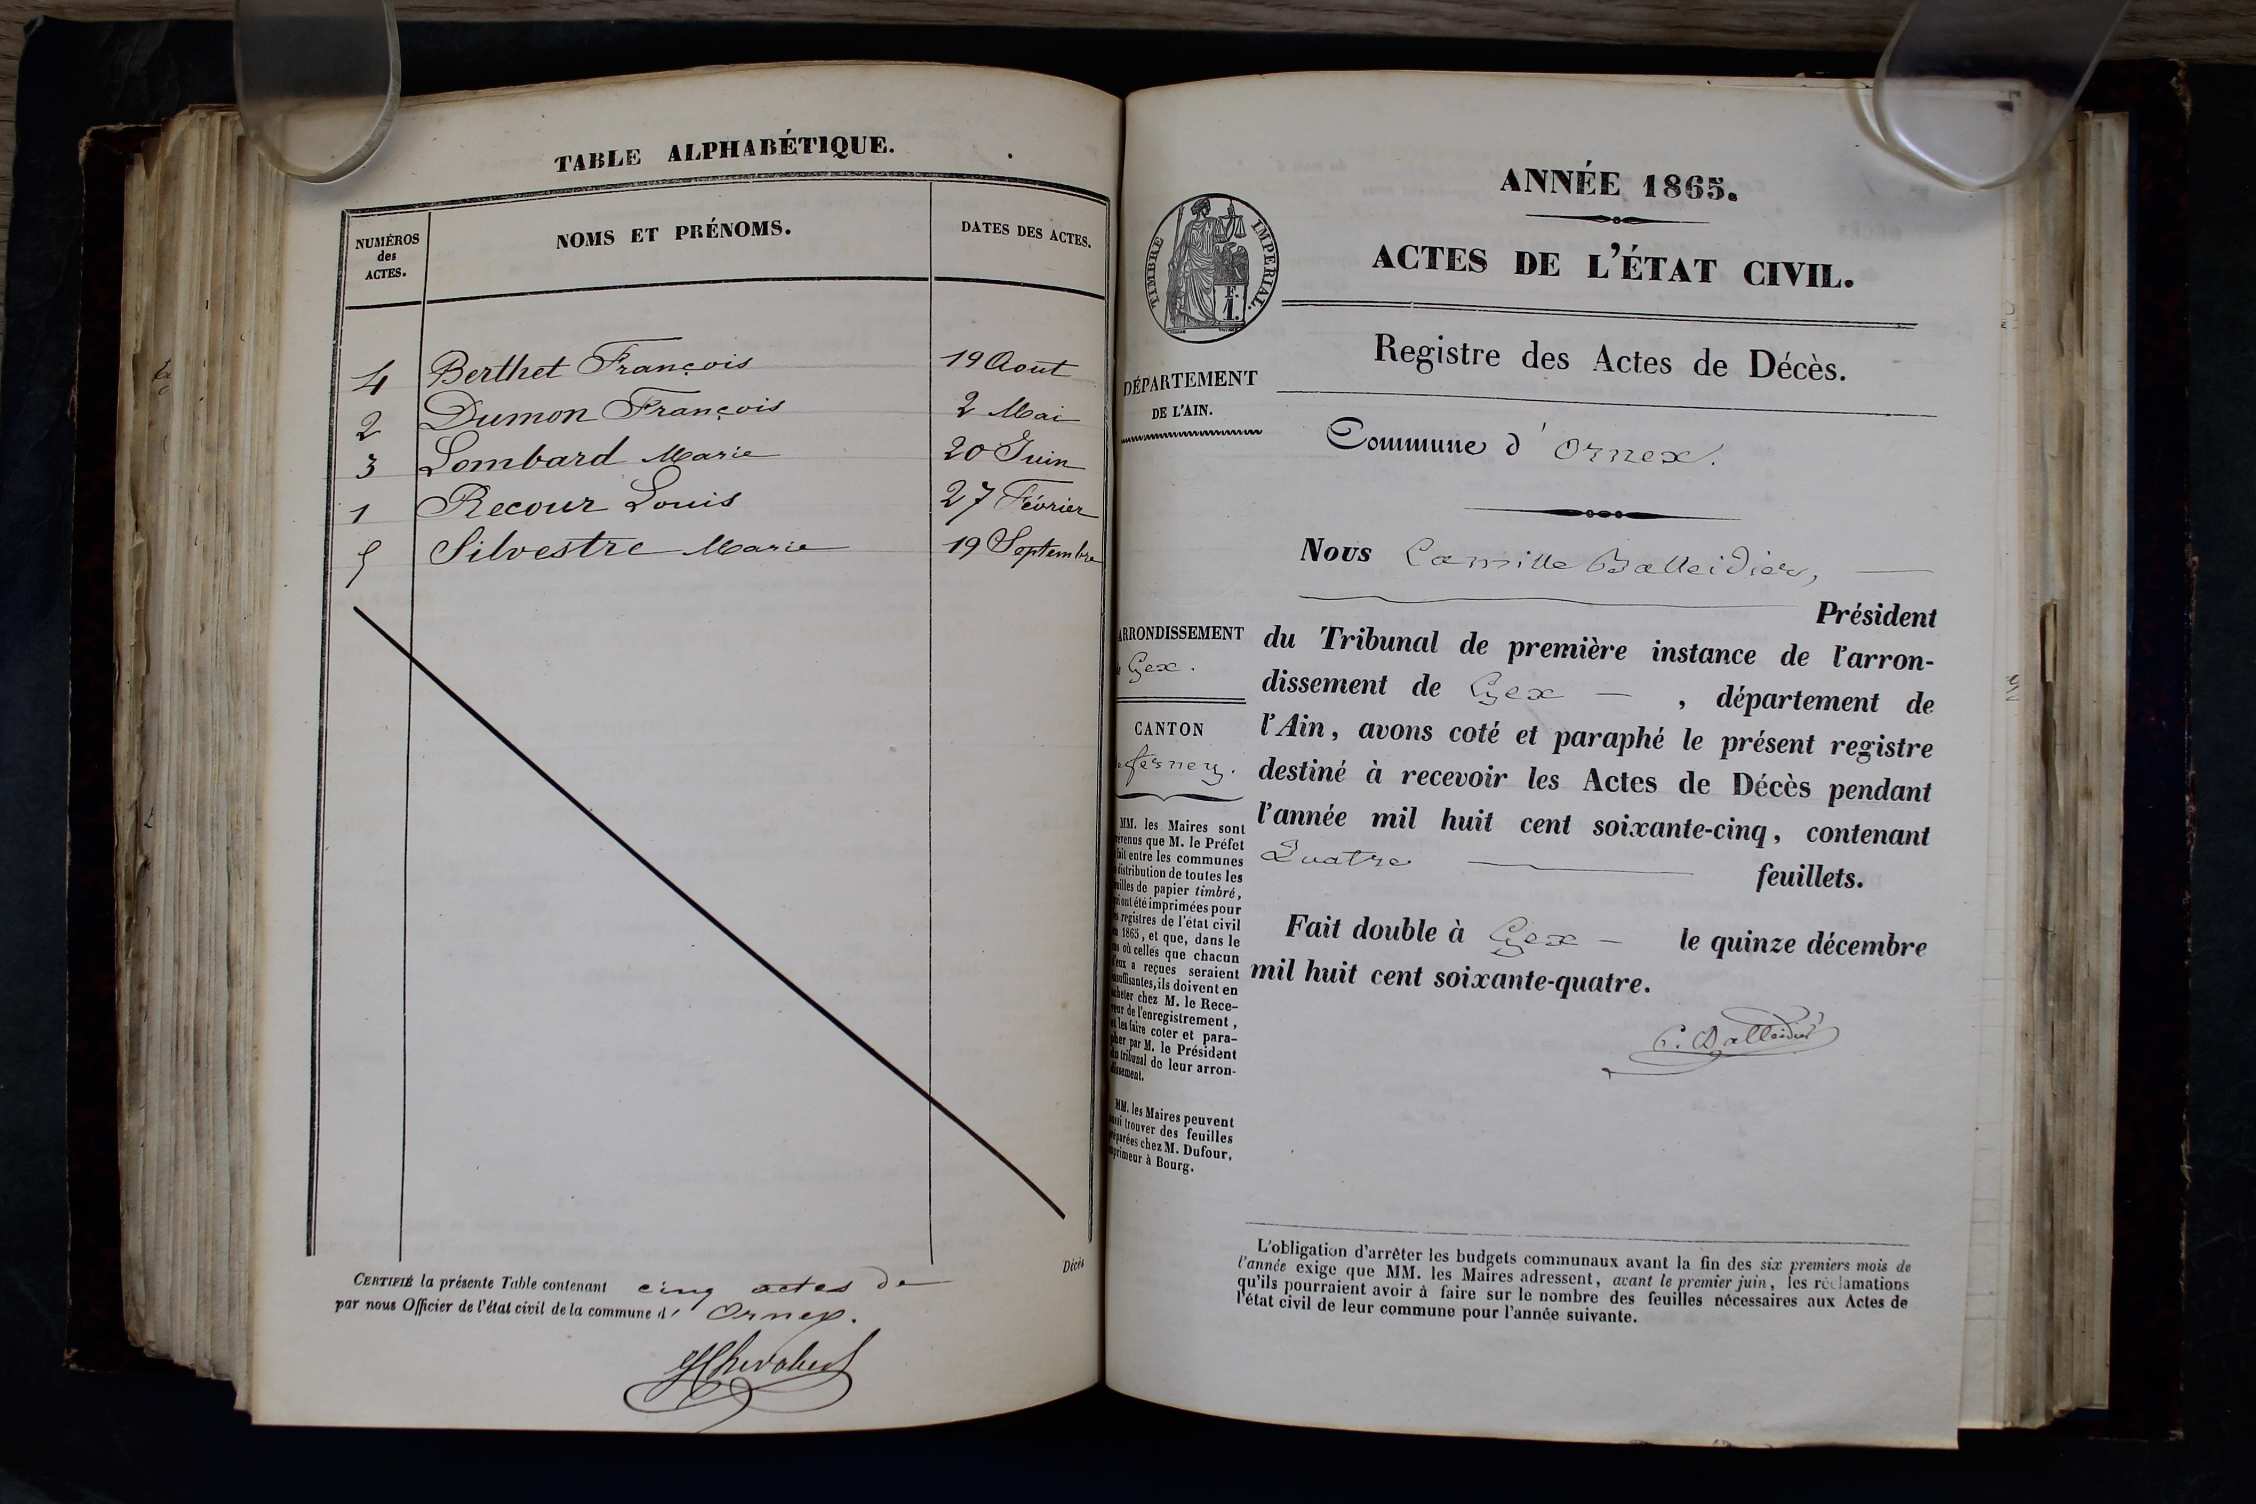 TABLE ALPHABÉTIQUE.
NUMÉROS
des
ACTES.
NOMS ET PRÉNOMS.
DATES DES ACTES.
4 Berthet François 19 Aout
2 Dumon François 2 Mai
3 Lombard Marie 20 Juin
1 Recour Louis 27 Février
5 Silvestre Marie 19 Septembre
Décès
CERTIFIÉ la présente Table contenant cinq actes de
par nous Officier de l'état civil de la commune d' Ornex.
ANNÉE 1865.
ACTES DE L'ÉTAT CIVIL.
TIMBRE IMPERIAL.
Registre des Actes de Décès.
DÉPARTEMENT
DE L'AIN.
Commune d' Ornex.
Nous Camille Balleidier,
Président
du Tribunal de première instance de l'arron-
dissement de Gex , département de
l'Ain, avons coté et paraphé le présent registre
destiné à recevoir les Actes de Décès pendant
l'année mil huit cent soixante-cinq, contenant
Quatre feuillets.
Fait double à Gex le quinze décembre
mil huit cent soixante-quatre.
C. Balleidier
ARRONDISSEMENT
Gex.
CANTON
fesney.
MM. les Maires sont
que M. le Préfet
entre les communes
distribution de toutes les
de papier timbré,
ont été imprimées pour
registres de l'état civil
1865, et que, dans le
où celles que chacun
a reçues seraient
ils doivent en
chez M. le Rece-
de l'enregistrement,
les faire coter et para-
par M. le Président
tribunal de leur arron-
MM. les Maires peuvent
trouver des feuilles
chez M. Dufour,
à Bourg.
L'obligation d'arrêter les budgets communaux avant la fin des six premiers mois de
l'année exige que MM. les Maires adressent, avant le premier juin, les réclamations
qu'ils pourraient avoir à faire sur le nombre des feuilles nécessaires aux Actes de
l'état civil de leur commune pour l'année suivante.